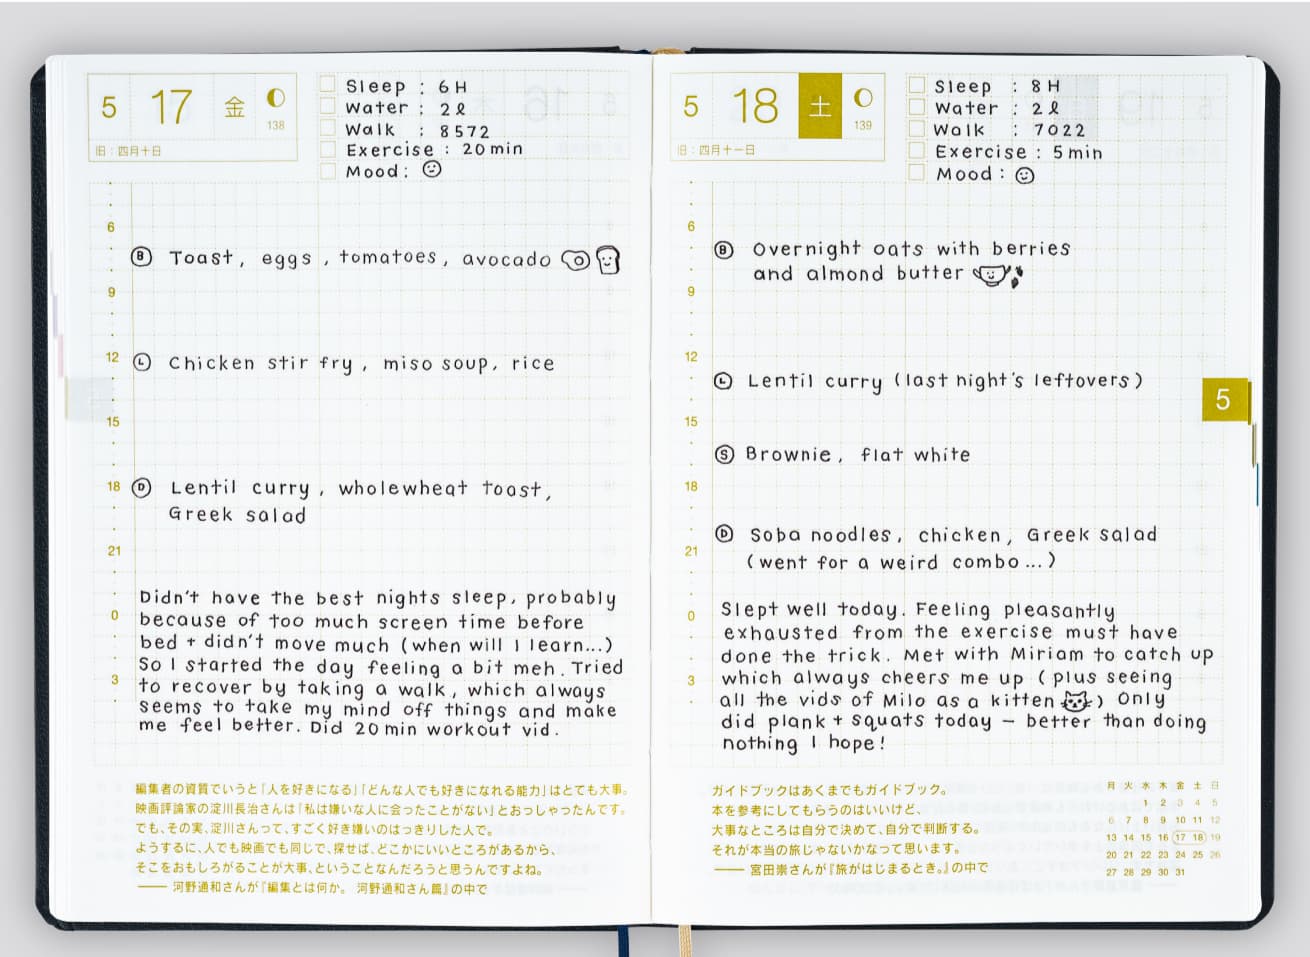 5 17 金
138
旧：四月十日
Sleep : 6H
Water : 2ℓ
Walk : 8572
Exercise : 20min
Mood:
6
B Toast, eggs, tomatoes, avocado
9
12 L Chicken stir fry, miso soup, rice
15
18 D Lentil curry, wholewheat toast,
Greek salad
21
Didn't have the best nights sleep, probably
0 because of too much screen time before
bed + didn't move much (when will I learn...)
So I started the day feeling a bit meh. Tried
3 to recover by taking a walk, which always
seems to take my mind off things and make
me feel better. Did 20min workout vid.
編集者の資質でいうと「人を好きになる」「どんな人でも好きになれる能力」はとても大事。
映画評論家の淀川長治さんは「私は嫌いな人に会ったことがない」とおっしゃったんです。
でも、その実、淀川さんって、すごく好き嫌いのはっきりした人で。
ようするに、人でも映画でも同じで、探せば、どこかにいいところがあるから、
そこをおもしろがることが大事、ということなんだろうと思うんですよね。
── 河野通和さんが『編集とは何か。 河野通和さん篇』の中で
5 18 土
139
旧：四月十一日
Sleep : 8H
Water : 2ℓ
Walk : 7022
Exercise : 5min
Mood:
6
B Overnight oats with berries
and almond butter
9
12
L Lentil curry (last night's leftovers)
5
15
S Brownie, flat white
18
D Soba noodles, chicken, Greek salad
21
(went for a weird combo...)
0 Slept well today. Feeling pleasantly
exhausted from the exercise must have
done the trick. Met with Miriam to catch up
3 which always cheers me up (plus seeing
all the vids of Milo as a kitten) Only
did plank + squats today – better than doing
nothing I hope!
ガイドブックはあくまでもガイドブック。
本を参考にしてもらうのはいいけど、
大事なところは自分で決めて、自分で判断する。
それが本当の旅じゃないかなって思います。
── 宮田崇さんが『旅がはじまるとき。』の中で
月 火 水 木 金 土 日
1 2 3 4 5
6 7 8 9 10 11 12
13 14 15 16 17 18 19
20 21 22 23 24 25 26
27 28 29 30 31